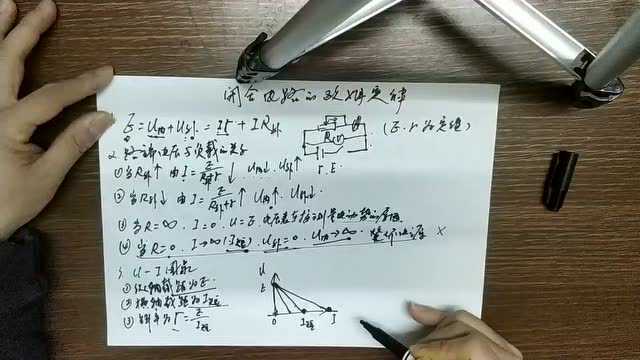 闭合电路的欧姆定律
E=U内+U外=Ir+IR外
(E.r为定值)
R
V
r.E
2.路端电压与负载的关系
①当R外↑ 由I=E/(R外+r)↓ U内↓.U外↑
②当R外↓ 由I=E/(R外+r)↑ U内↑.U外↓
③当R=∞.I=0.U=E.电压表
④当R=0.I→∞(I短).U外=0. ×
3.U-I图象
①纵轴截距为E.
②横轴截距为I短
③斜率为r=E/I短
U
E
0 I短 I